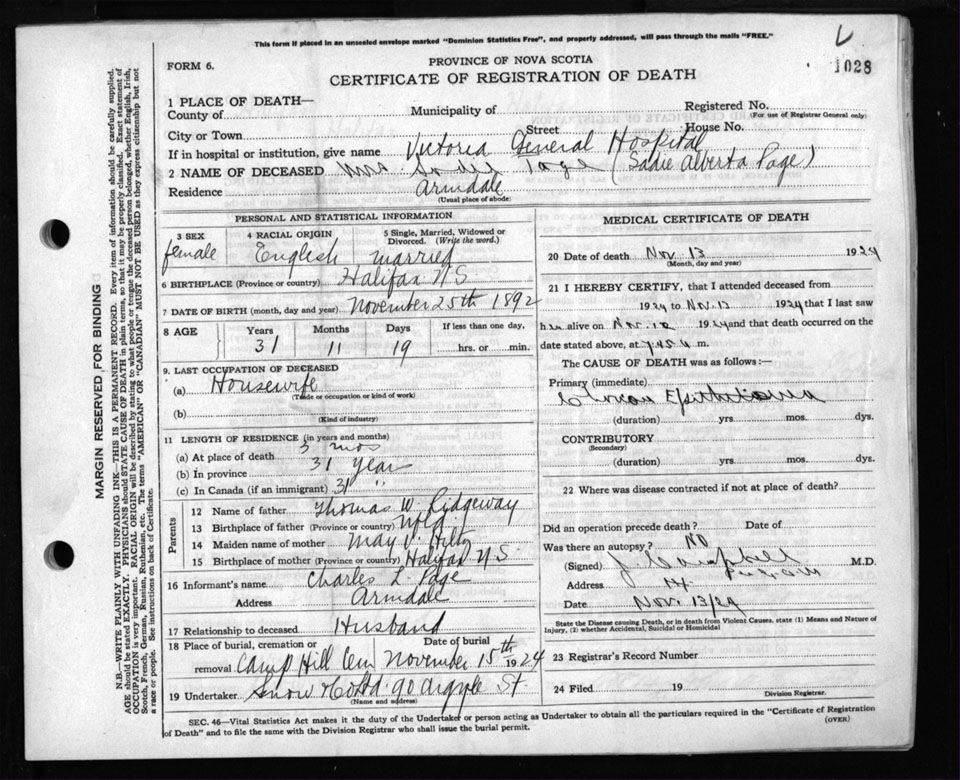 This form if placed in an unsealed envelope marked "Dominion Statistics Free", and properly addressed, will pass through the mails "FREE."
1028
FORM 6.
PROVINCE OF NOVA SCOTIA
CERTIFICATE OF REGISTRATION OF DEATH
1 PLACE OF DEATH—
County of Municipality of Registered No.
(For use of Registrar General only)
City or Town Street House No.
If in hospital or institution, give name Victoria General Hospital
2 NAME OF DECEASED Mrs Sadie Page (Sadie Alberta Page)
Residence Armdale
(Usual place of abode)
PERSONAL AND STATISTICAL INFORMATION
3 SEX female
4 RACIAL ORIGIN English
5 Single, Married, Widowed or Divorced. (Write the word.) married
6 BIRTHPLACE (Province or country) Halifax N.S.
7 DATE OF BIRTH (month, day and year) November 25th 1892
8 AGE Years Months Days If less than one day,
31 11 19 hrs. or min.
9. LAST OCCUPATION OF DECEASED
(a) Housewife
(Trade or occupation or kind of work)
(b)
(Kind of industry)
11 LENGTH OF RESIDENCE (in years and months)
(a) At place of death 3 mos
(b) In province 31 year
(c) In Canada (if an immigrant) 31 "
Parents
12 Name of father Thomas W. Ridgeway
13 Birthplace of father (Province or country) Nfld.
14 Maiden name of mother May V. Hiltz
15 Birthplace of mother (Province or country) Halifax N.S.
16 Informant's name Charles L. Page
Address Armdale
17 Relationship to deceased Husband
18 Place of burial, cremation or removal Camp Hill Cem Date of burial November 15th 1924
19 Undertaker Snow & Co Ltd. 90 Argyle St.
(Name and address)
MEDICAL CERTIFICATE OF DEATH
20 Date of death Nov. 13 1924
(Month, day and year)
21 I HEREBY CERTIFY, that I attended deceased from
1924 to Nov. 13 1924 that I last saw
her alive on Nov. 12 1924 and that death occurred on
date stated above, at 7.45 a m.
The CAUSE OF DEATH was as follows:—
Primary (immediate)
Epithelioma
(duration) yrs. mos. dys.
CONTRIBUTORY
(Secondary)
(duration) yrs. mos. dys.
22 Where was disease contracted if not at place of death?
Did an operation precede death? Date of
Was there an autopsy? NO
(Signed) J. Campbell M.D.
Address
Date Nov. 13/24
State the Disease causing Death, or in death from Violent Causes, state (1) Means and Nature of
Injury, (2) whether Accidental, Suicidal or Homicidal
23 Registrar's Record Number
24 Filed 19
Division Registrar.
SEC. 46—Vital Statistics Act makes it the duty of the Undertaker or person acting as Undertaker to obtain all the particulars required in the "Certificate of Registration
of Death" and to file the same with the Division Registrar who shall issue the burial permit.
(OVER)
MARGIN RESERVED FOR BINDING
N.B.—WRITE PLAINLY WITH UNFADING INK—THIS IS A PERMANENT RECORD. Every item of information should be carefully supplied.
AGE should be stated EXACTLY. PHYSICIANS should STATE CAUSE OF DEATH in plain terms, so that it may be properly classified. Exact statement of
OCCUPATION is very important. RACIAL ORIGIN will be described by stating to what people or tongue the deceased person belonged, whether English, Irish,
Scotch, French, German, Russian, Ruthenian, etc. The terms "AMERICAN" or "CANADIAN" MUST NOT BE USED as they express citizenship but not
a race or people. See instructions on back of Certificate.